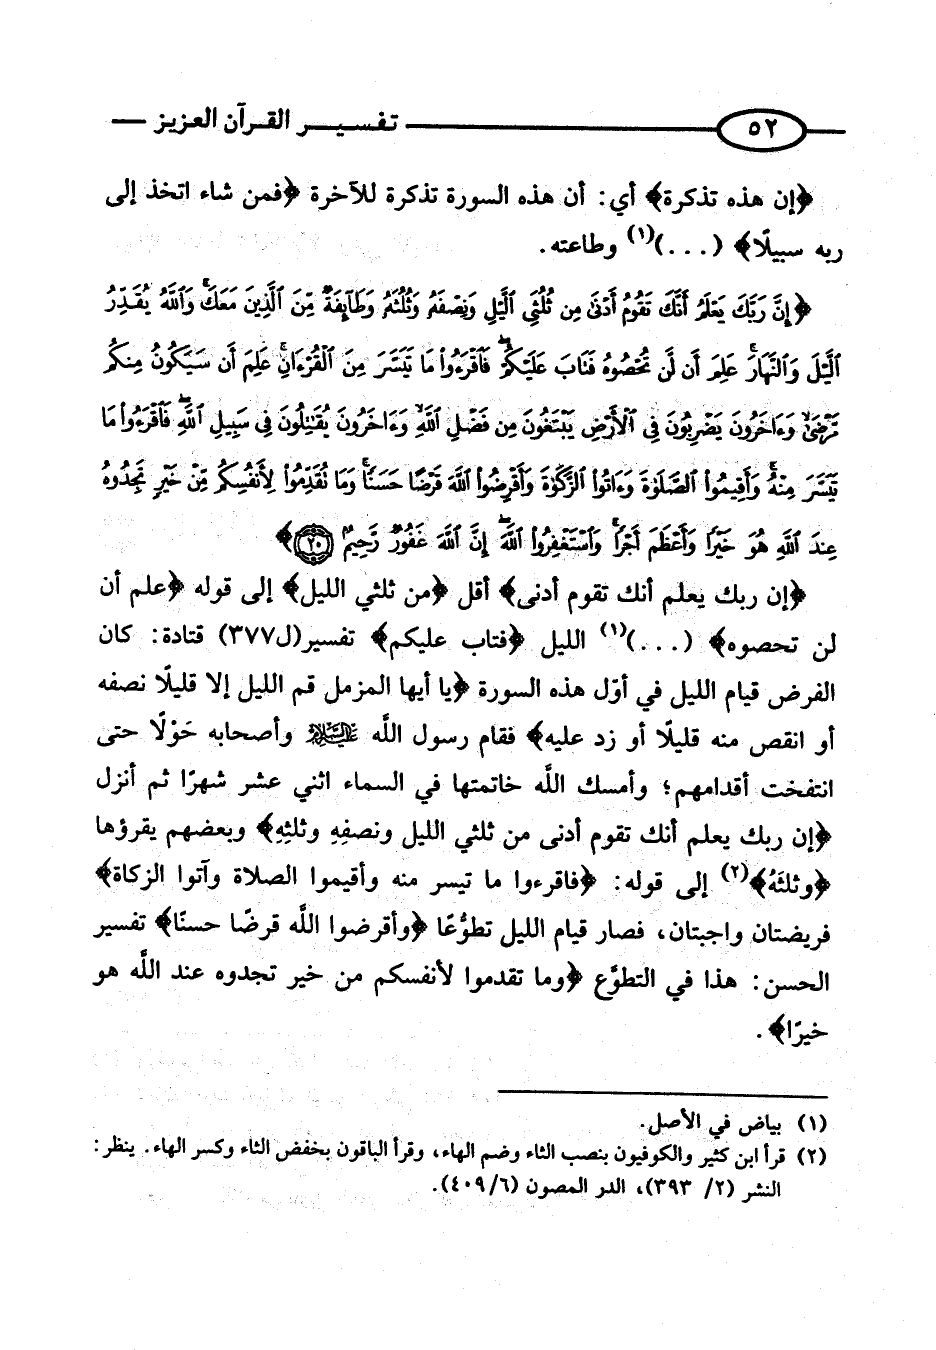 ٥٢ تفسير القرآن العزيز
﴿إن هذه تذكرة﴾ أي: أن هذه السورة تذكرة للآخرة ﴿فمن شاء اتخذ إلى
ربه سبيلًا﴾ (...)(١) وطاعته.
﴿إِنَّ رَبَّكَ يَعْلَمُ أَنَّكَ تَقُومُ أَدْنَىٰ مِن ثُلُثَيِ ٱلَّيْلِ وَنِصْفَهُۥ وَثُلُثَهُۥ وَطَآئِفَةٌ مِّنَ ٱلَّذِينَ مَعَكَ ۚ وَٱللَّهُ يُقَدِّرُ
ٱلَّيْلَ وَٱلنَّهَارَ ۚ عَلِمَ أَن لَّن تُحْصُوهُ فَتَابَ عَلَيْكُمْ ۖ فَٱقْرَءُوا۟ مَا تَيَسَّرَ مِنَ ٱلْقُرْءَانِ ۚ عَلِمَ أَن سَيَكُونُ مِنكُم
مَّرْضَىٰ ۙ وَءَاخَرُونَ يَضْرِبُونَ فِى ٱلْأَرْضِ يَبْتَغُونَ مِن فَضْلِ ٱللَّهِ ۙ وَءَاخَرُونَ يُقَٰتِلُونَ فِى سَبِيلِ ٱللَّهِ ۖ فَٱقْرَءُوا۟ مَا
تَيَسَّرَ مِنْهُ ۚ وَأَقِيمُوا۟ ٱلصَّلَوٰةَ وَءَاتُوا۟ ٱلزَّكَوٰةَ وَأَقْرِضُوا۟ ٱللَّهَ قَرْضًا حَسَنًا ۚ وَمَا تُقَدِّمُوا۟ لِأَنفُسِكُم مِّنْ خَيْرٍ تَجِدُوهُ
عِندَ ٱللَّهِ هُوَ خَيْرًا وَأَعْظَمَ أَجْرًا ۚ وَٱسْتَغْفِرُوا۟ ٱللَّهَ ۖ إِنَّ ٱللَّهَ غَفُورٌ رَّحِيمٌۢ ٢٠﴾
﴿إن ربك يعلم أنك تقوم أدنى﴾ أقل ﴿من ثلثي الليل﴾ إلى قوله ﴿علم أن
لن تحصوه﴾ (...)(١) الليل ﴿فتاب عليكم﴾ تفسير(ل٣٧٧) قتادة: كان
الفرض قيام الليل في أوّل هذه السورة ﴿يا أيها المزمل قم الليل إلا قليلًا نصفه
أو انقص منه قليلًا أو زد عليه﴾ فقام رسول اللَّه عليه السلام وأصحابه حَوْلًا حتى
انتفخت أقدامهم؛ وأمسك اللَّه خاتمتها في السماء اثني عشر شهرًا ثم أنزل
﴿إن ربك يعلم أنك تقوم أدنى من ثلثي الليل ونصفِهِ وثلثِهِ﴾ وبعضهم يقرؤها
﴿وثلثَهُ﴾(٢) إلى قوله: ﴿فاقرءوا ما تيسر منه وأقيموا الصلاة وآتوا الزكاة﴾
فريضتان واجبتان، فصار قيام الليل تطوُّعًا ﴿وأقرضوا اللَّه قرضًا حسنًا﴾ تفسير
الحسن: هذا في التطوُّع ﴿وما تقدموا لأنفسكم من خير تجدوه عند اللَّه هو
خيرًا﴾.
(١) بياض في الأصل.
(٢) قرأ ابن كثير والكوفيون بنصب الثاء وضم الهاء، وقرأ الباقون بخفض الثاء وكسر الهاء. ينظر:
النشر (٢/ ٣٩٣)، الدر المصون (٤٠٩/٦).